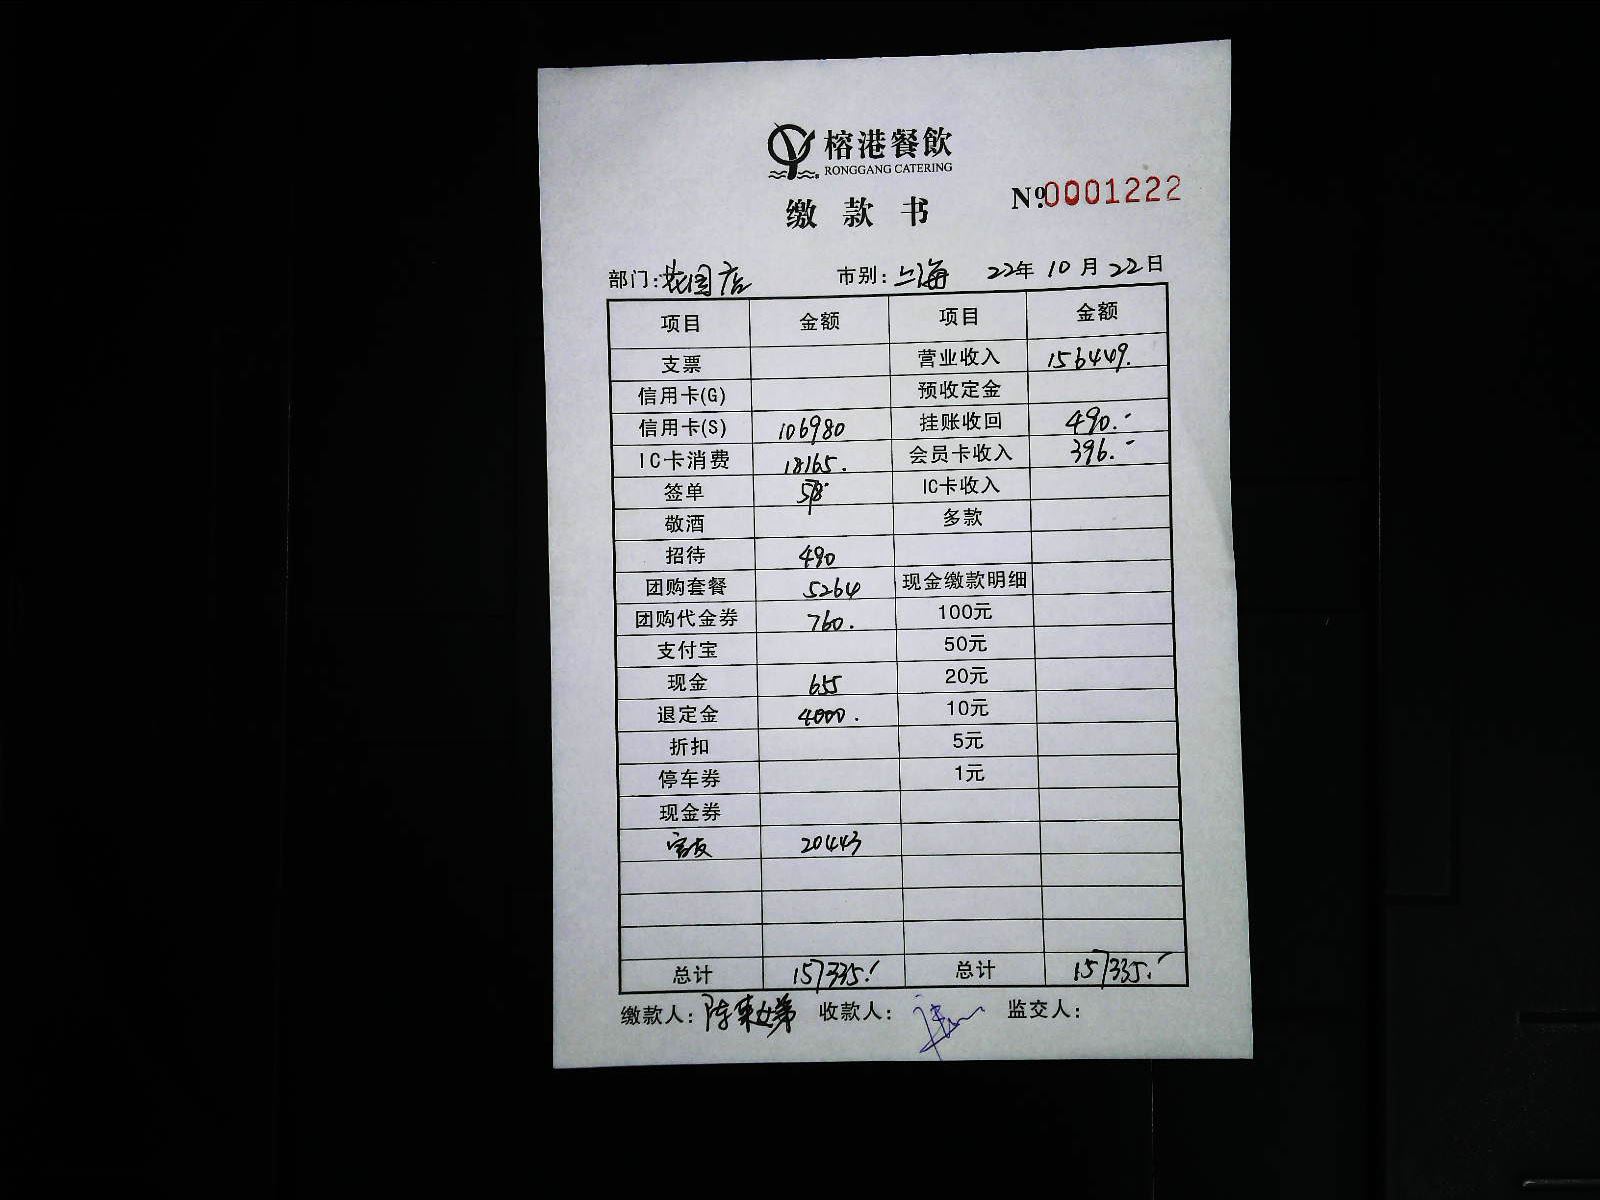 榕港餐飲
RONGGANG CATERING
缴款书 №0001222
部门:花园店 市别:上海 22年10月22日
项目 金额 项目 金额
支票 营业收入 156449.
信用卡(G) 预收定金
信用卡(S) 106980 挂账收回 490.-
IC卡消费 18165. 会员卡收入 396.-
签单 578 IC卡收入
敬酒 多款
招待 490
团购套餐 5264 现金缴款明细
团购代金券 760. 100元
支付宝 50元
现金 655 20元
退定金 4000. 10元
折扣 5元
停车券 1元
现金券
20443
总计 157335.- 总计 157335.-
缴款人: 收款人: 监交人: